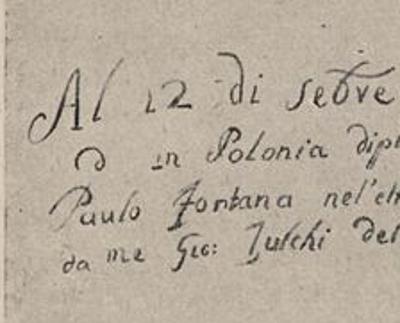 Al 12 di setvre
in Polonia dipi
Paulo Fontana nel'et
da me Gio: Julchi del